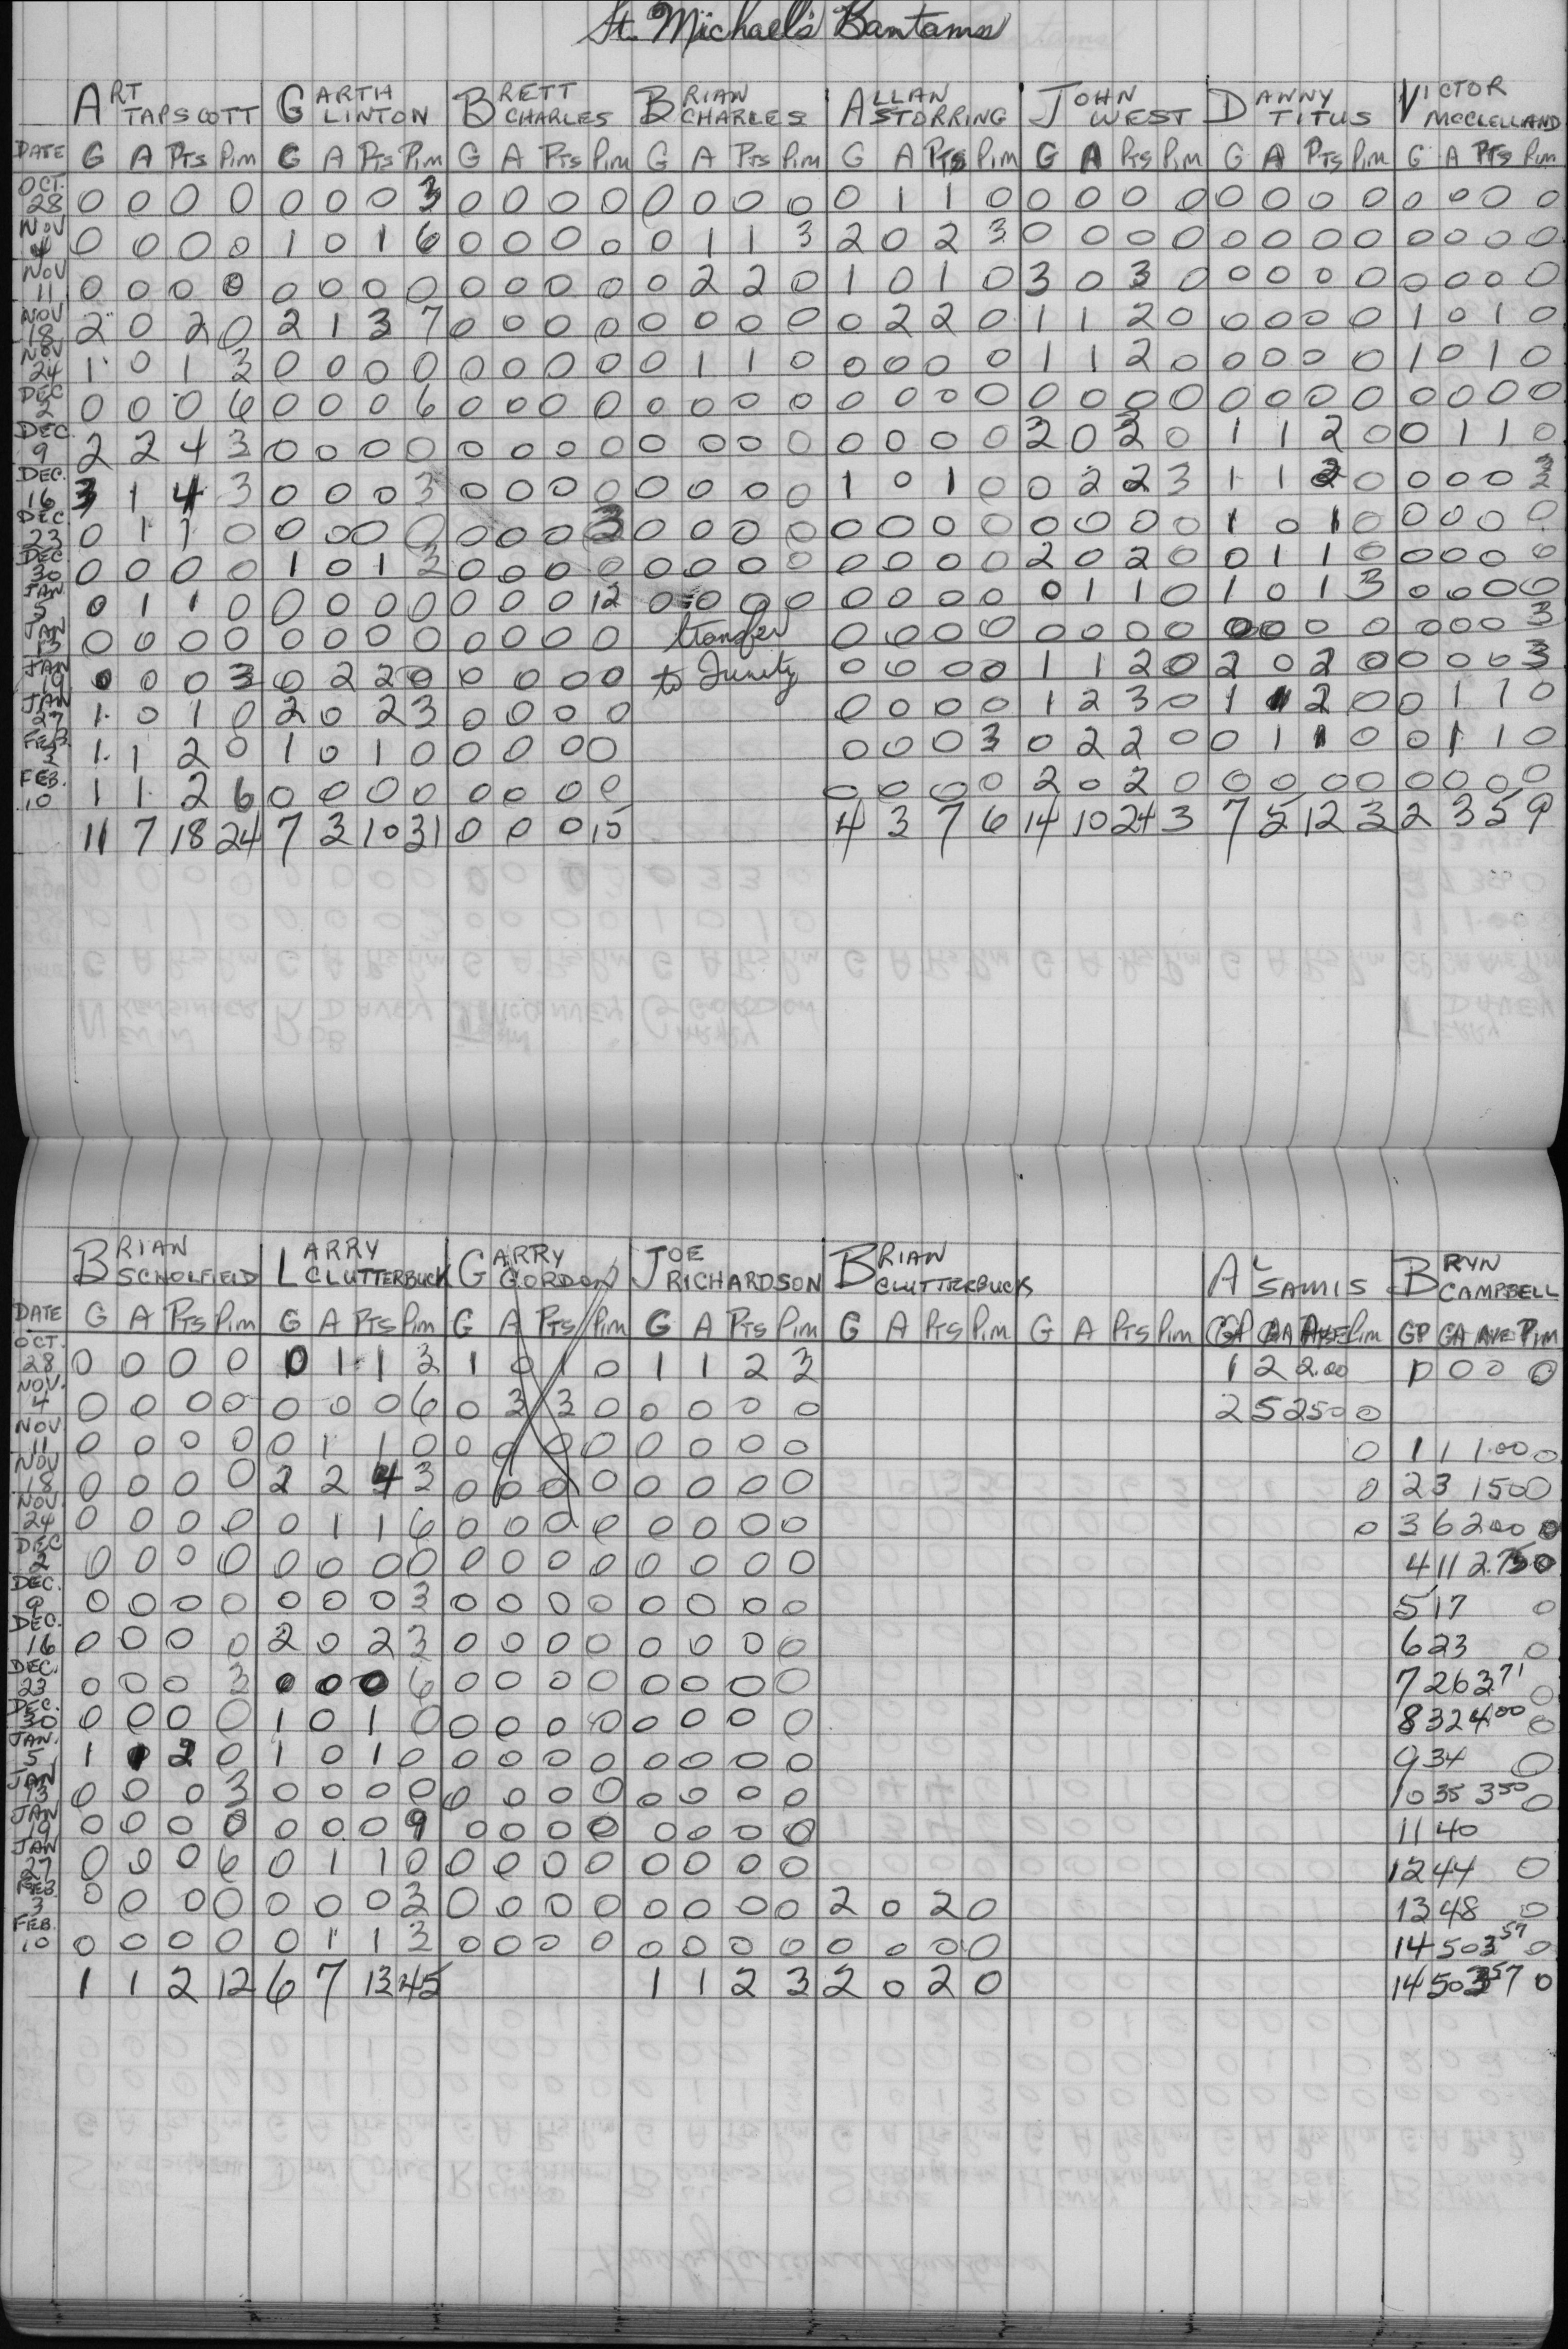 St. Michael's Bantams
ART TAPSCOTT GARTH LINTON BRETT CHARLES BRIAN CHARLES ALLAN STORRING JOHN WEST DANNY TITUS VICTOR MCCLELLAND
DATE G A PTS PIM G A PTS PIM G A PTS PIM G A PTS PIM G A PTS PIM G A PTS PIM G A PTS PIM G A PTS PIM
OCT. 28 0 0 0 0 0 0 0 3 0 0 0 0 0 0 0 0 0 1 1 0 0 0 0 0 0 0 0 0 0 0 0 0
NOV 4 0 0 0 0 1 0 1 6 0 0 0 0 0 1 1 3 2 0 2 3 0 0 0 0 0 0 0 0 0 0 0 0
NOV 11 0 0 0 0 0 0 0 0 0 0 0 0 0 2 2 0 1 0 1 0 3 0 3 0 0 0 0 0 0 0 0 0
NOV 18 2 0 2 0 2 1 3 7 0 0 0 0 0 0 0 0 0 2 2 0 1 1 2 0 0 0 0 0 1 0 1 0
NOV 24 1 0 1 3 0 0 0 0 0 0 0 0 0 1 1 0 0 0 0 0 1 1 2 0 0 0 0 0 1 0 1 0
DEC 2 0 0 0 6 0 0 0 6 0 0 0 0 0 0 0 0 0 0 0 0 0 0 0 0 0 0 0 0 0 0 0 0
DEC. 9 2 2 4 3 0 0 0 0 0 0 0 0 0 0 0 0 0 0 0 0 2 0 2 0 1 1 2 0 0 1 1 0
DEC. 16 3 1 4 3 0 0 0 3 0 0 0 0 0 0 0 0 1 0 1 0 0 2 2 3 1 1 2 0 0 0 0 3
DEC 23 0 1 1 0 0 0 0 0 0 0 0 3 0 0 0 0 0 0 0 0 0 0 0 0 1 0 1 0 0 0 0 0
DEC 30 0 0 0 0 1 0 1 3 0 0 0 0 0 0 0 0 0 0 0 0 2 0 2 0 0 1 1 0 0 0 0 0
JAN. 5 0 1 1 0 0 0 0 0 0 0 0 12 0 0 0 0 0 0 0 0 0 1 1 0 1 0 1 3 0 0 0 0
JAN 13 0 0 0 0 0 0 0 0 0 0 0 0 transfer 0 0 0 0 0 0 0 0 0 0 0 0 0 0 0 3
JAN 19 0 0 0 3 0 2 2 0 0 0 0 0 to 0 0 0 0 1 1 2 0 2 0 2 0 0 0 0 3
JAN 27 1 0 1 0 2 0 2 3 0 0 0 0 0 0 0 0 1 2 3 0 1 1 2 0 0 1 1 0
FEB. 3 1 1 2 0 1 0 1 0 0 0 0 0 0 0 0 3 0 2 2 0 0 1 1 0 0 1 1 0
FEB. 10 1 1 2 6 0 0 0 0 0 0 0 0 0 0 0 0 2 0 2 0 0 0 0 0 0 0 0 0
11 7 18 24 7 3 10 31 0 0 0 15 4 3 7 6 14 10 24 3 7 5 12 3 2 3 5 9
BRIAN SCHOLFIELD LARRY CLUTTERBUCK GARRY GORDON JOE RICHARDSON BRIAN CLUTTERBUCK AL SAMIS BRYN CAMPBELL
DATE G A PTS PIM G A PTS PIM G A PTS PIM G A PTS PIM G A PTS PIM G A PTS PIM GP GA AVE PIM GP GA AVE PIM
OCT. 28 0 0 0 0 0 1 1 3 1 0 1 0 1 1 2 3 1 2 2.00 0 0 0
NOV. 4 0 0 0 0 0 0 0 6 0 3 3 0 0 0 0 0 2 5 250 0
NOV 11 0 0 0 0 0 1 1 0 0 0 0 0 0 0 0 0 0 1 1 1.00 0
NOV 18 0 0 0 0 2 2 4 3 0 0 0 0 0 0 0 0 0 2 3 150 0
NOV. 24 0 0 0 0 0 1 1 6 0 0 0 0 0 0 0 0 0 3 6 200 0
DEC 2 0 0 0 0 0 0 0 0 0 0 0 0 0 0 0 0 4 11 2.75 0
DEC. 9 0 0 0 0 0 0 0 3 0 0 0 0 0 0 0 0 5 17 0
DEC. 16 0 0 0 0 2 0 2 3 0 0 0 0 0 0 0 0 6 23 0
DEC. 23 0 0 0 3 0 0 0 6 0 0 0 0 0 0 0 0 7 26 3.71 0
DEC. 30 0 0 0 0 1 0 1 0 0 0 0 0 0 0 0 0 8 32 4.00 0
JAN. 5 1 1 2 0 1 0 1 0 0 0 0 0 0 0 0 0 9 34 0
JAN 13 0 0 0 3 0 0 0 0 0 0 0 0 0 0 0 0 10 35 350 0
JAN 19 0 0 0 0 0 0 0 9 0 0 0 0 0 0 0 0 11 40
JAN 27 0 0 0 6 0 1 1 0 0 0 0 0 0 0 0 0 12 44 0
FEB. 3 0 0 0 0 0 0 0 3 0 0 0 0 0 0 0 0 2 0 2 0 13 48 0
FEB. 10 0 0 0 0 0 1 1 3 0 0 0 0 0 0 0 0 0 0 0 0 14 50 357 0
1 1 2 12 6 7 13 45 1 1 2 3 2 0 2 0 14 50 357 0